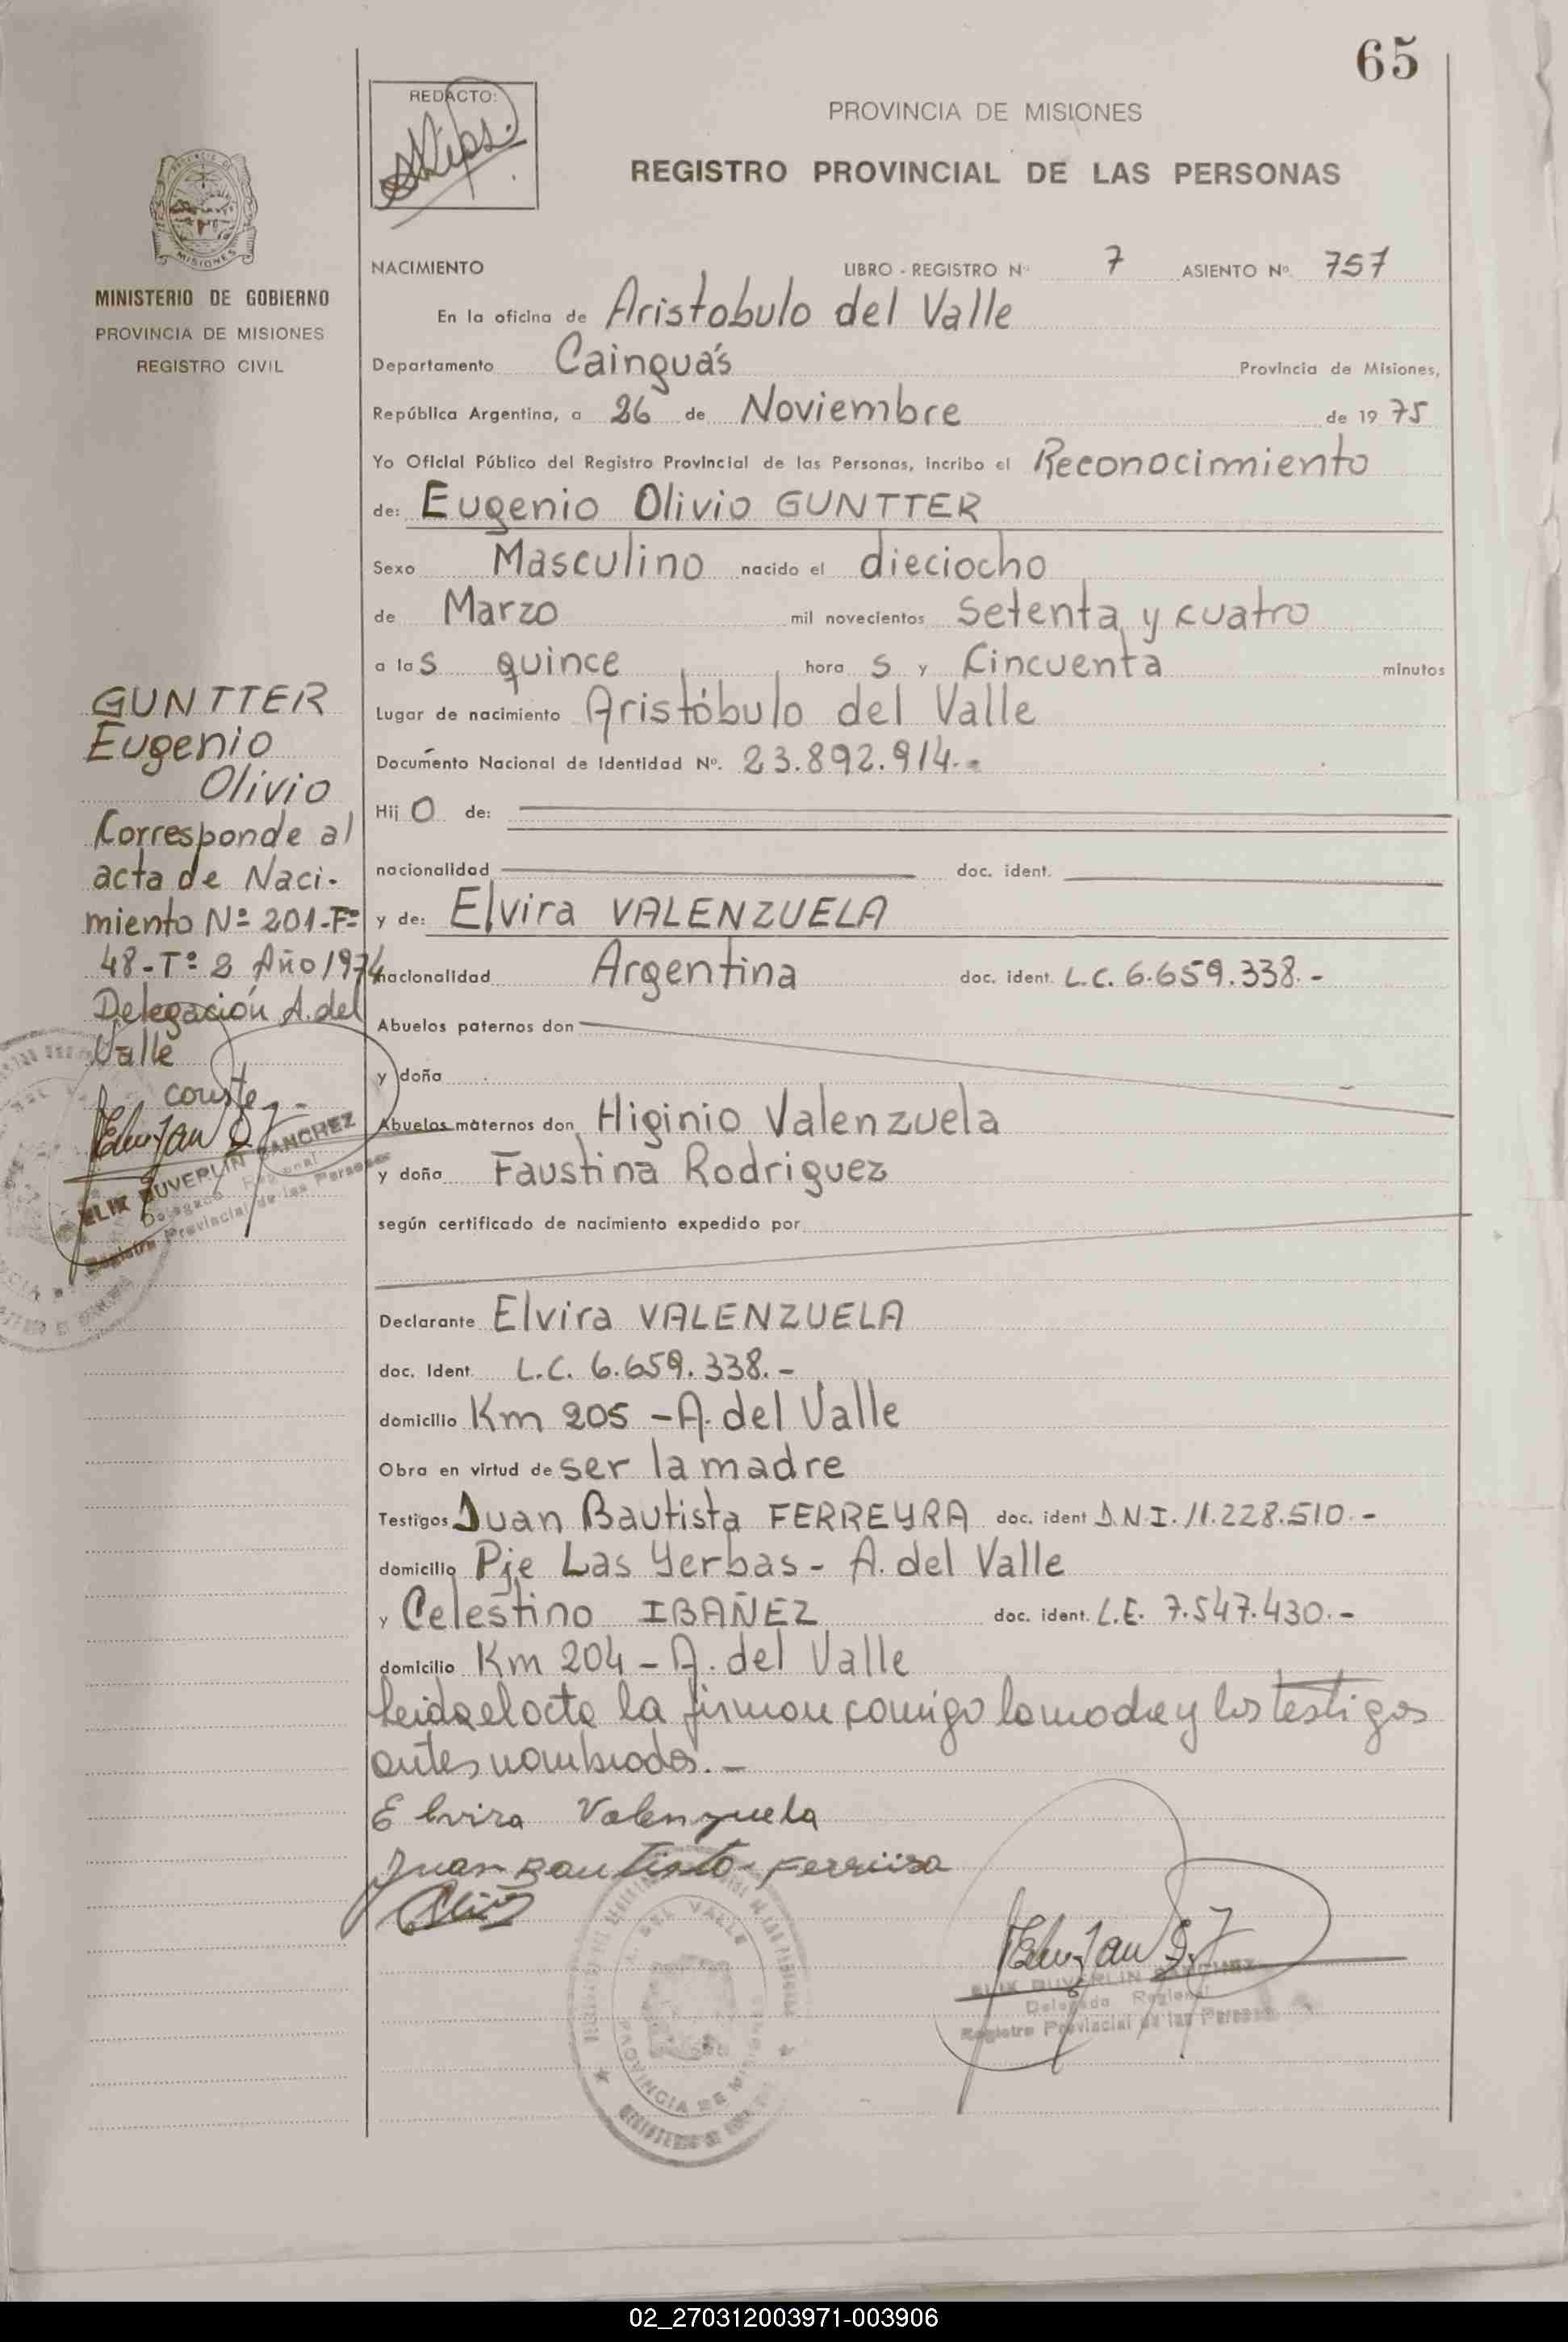 65
REDACTO:
PROVINCIA DE MISIONES
REGISTRO PROVINCIAL DE LAS PERSONAS
MISIONES
MINISTERIO DE GOBIERNO
PROVINCIA DE MISIONES
REGISTRO CIVIL
NACIMIENTO LIBRO - REGISTRO Nº 7 ASIENTO Nº 757
En la oficina de Aristobulo del Valle
Departamento Cainguás Provincia de Misiones,
República Argentina, a 26 de Noviembre de 19 75
Yo Oficial Público del Registro Provincial de las Personas, incribo el Reconocimiento
de: Eugenio Olivio GUNTTER
Sexo Masculino nacido el dieciocho
de Marzo mil novecientos setenta y cuatro
a las quince horas y Cincuenta minutos
Lugar de nacimiento Aristóbulo del Valle
Documento Nacional de Identidad Nº. 23.892.914.-
Hijo de:
nacionalidad doc. ident.
y de: Elvira VALENZUELA
nacionalidad Argentina doc. ident. L.C. 6.659.338.-
Abuelos paternos don
y doña
Abuelos maternos don Higinio Valenzuela
y doña Faustina Rodriguez
según certificado de nacimiento expedido por
Declarante Elvira VALENZUELA
doc. Ident. L.C. 6.659.338.-
domicilio Km 205 - A. del Valle
Obra en virtud de ser la madre
Testigos Juan Bautista FERREYRA doc. ident D.N.I. 11.228.510.-
domicilio Pje Las Yerbas - A. del Valle
y Celestino IBAÑEZ doc. ident. L.E. 7.547.430.-
domicilio Km 204 - A. del Valle
Leida el acta la firman comigo la madre y los testigos
antes nombrados.-
Elvira Valenzuela
Juan Bautista Ferreira
GUNTTER
Eugenio
Olivio
Corresponde al
acta de Naci-
miento Nº 201-Fº
48-Tº 2 Año 1974
Delegación A. del
Valle
conste.-
ELIX DUVERLIN SANCHEZ
Delegado Regional
Registro Provincial de las Personas
A. DEL VALLE
PROVINCIA DE MISIONES
ELIX DUVERLIN SANCHEZ
Delegado Regional
Registro Provincial de las Personas
02_270312003971-003906